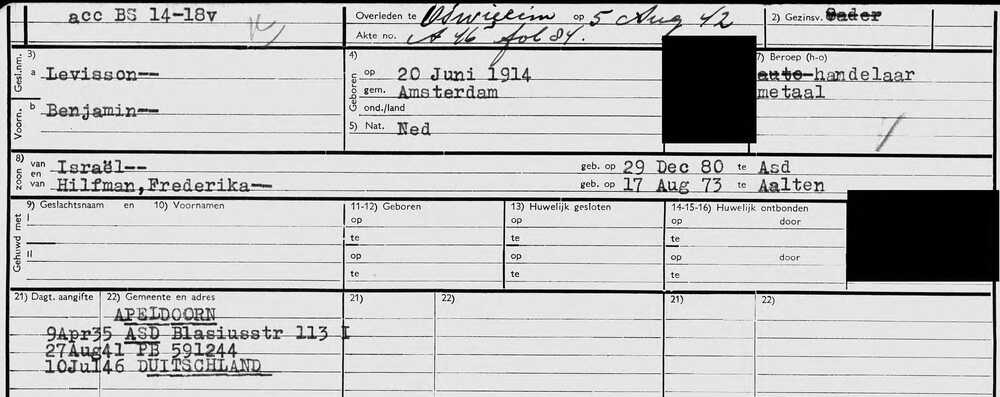 acc BS 14-18v
Overleden te Oswiecim op 5 Aug 42
2) Gezinsv. Vader
Akte no. A 46 fol 84.
3)
Gesl.nm. a Levisson--
Voorn. b Benjamin--
4)
Geboren op 20 Juni 1914
gem. Amsterdam
ond./land
5) Nat. Ned
7) Beroep (h-o)
auto-handelaar
metaal
8)
zoon van Israël-- geb. op 29 Dec 80 te Asd
en
van Hilfman,Frederika-- geb. op 17 Aug 73 te Aalten
9) Geslachtsnaam en 10) Voornamen 11-12) Geboren 13) Huwelijk gesloten 14-15-16) Huwelijk ontbonden
Gehuwd met I op op op door
te te te
II op op op door
te te te
21) Dagt. aangifte 22) Gemeente en adres 21) 22) 21) 22)
APELDOORN
9Apr35 ASD Blasiusstr 113 I
27Aug41 PB 591244
10Jul46 DUITSCHLAND